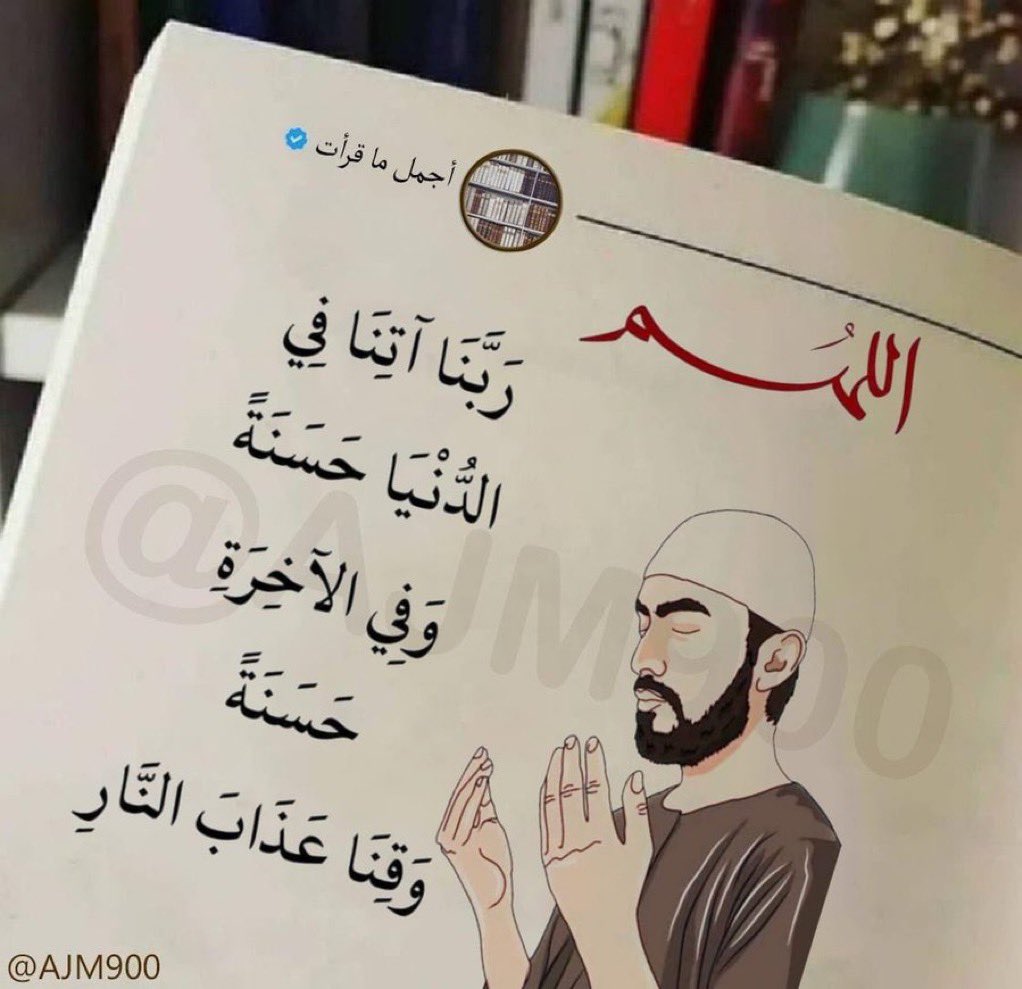 أجمل ما قرأت
اللهم
رَبَّنَا آتِنَا فِي
الدُّنْيَا حَسَنَةً
وَفِي الآخِرَةِ
حَسَنَةً
وَقِنَا عَذَابَ النَّارِ
@AJM900
@AJM900